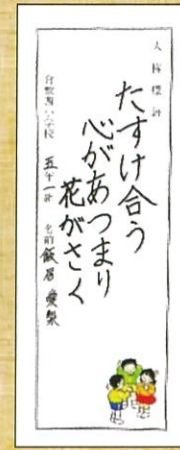 人権標語
たすけ合う
心があつまり
花がさく
五年一組 名前 飯居 愛梨